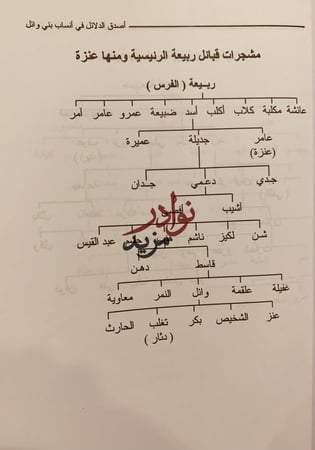 أصدق الدلائل في أنساب بني وائل
مشجرات قبائل ربيعة الرئيسية ومنها عنزة
ربـيـعة ( الفرس )
عائشة مكلبة كلاب أكلب أسد ضبيعة عمرو عامر أمر
عامر جديلة عميرة
(عنزة)
جدي دعمي جدان
أشيب
نوادر
شن لكيز ناشم عبد القيس
مزيد
قاسط دهن
غفيلة علقمة وائل النمر معاوية
عنز الشخيص بكر تغلب الحارث
( دثار )